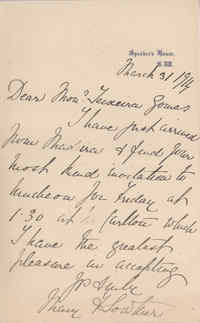 Speaker's House,
S.W.
March 31 1914
Dear Monr Teixeira Gomes
I have just arrived
from Madeira & find your
most kind invitation to
luncheon for Friday at
1.30 at Carlton which
I have the greatest
pleasure in accepting
Yrs truly
Mary Lowther